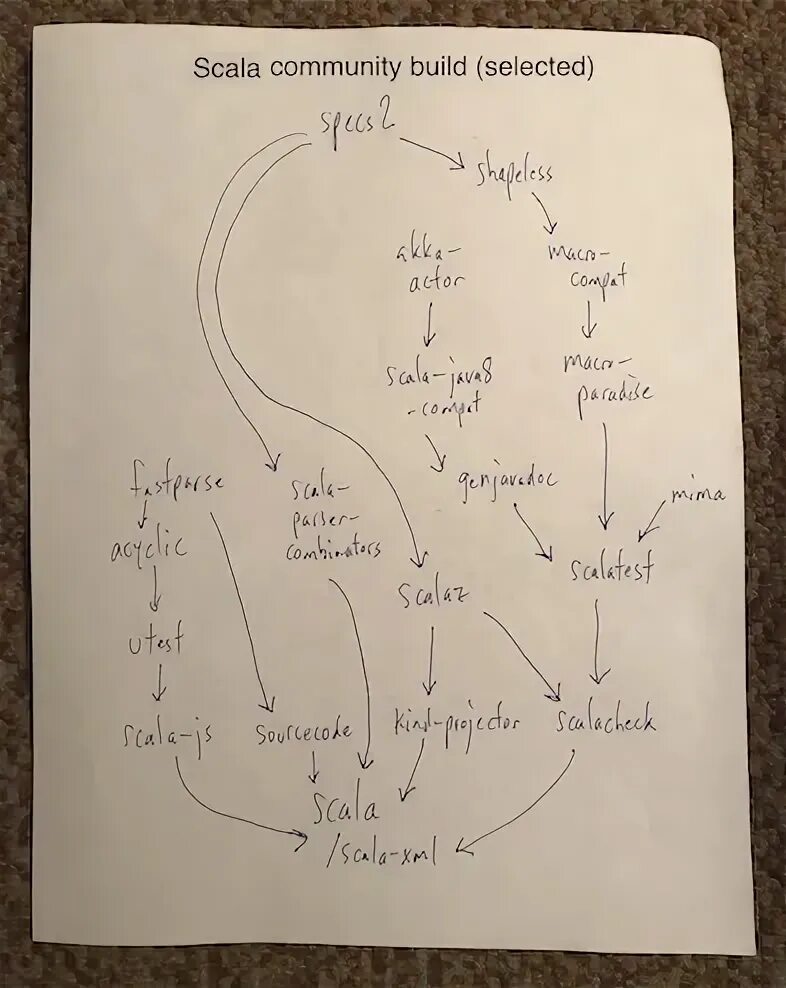 Scala community build (selected)
specs2
shapeless
akka-
actor
macro-
compat
scala-java8
-compat
macro-
paradise
fastparse
scala-
parser-
combinators
genjavadoc
mima
acyclic
scalatest
scalaz
utest
scala-js
sourcecode
kind-projector
scalacheck
scala
/scala-xml